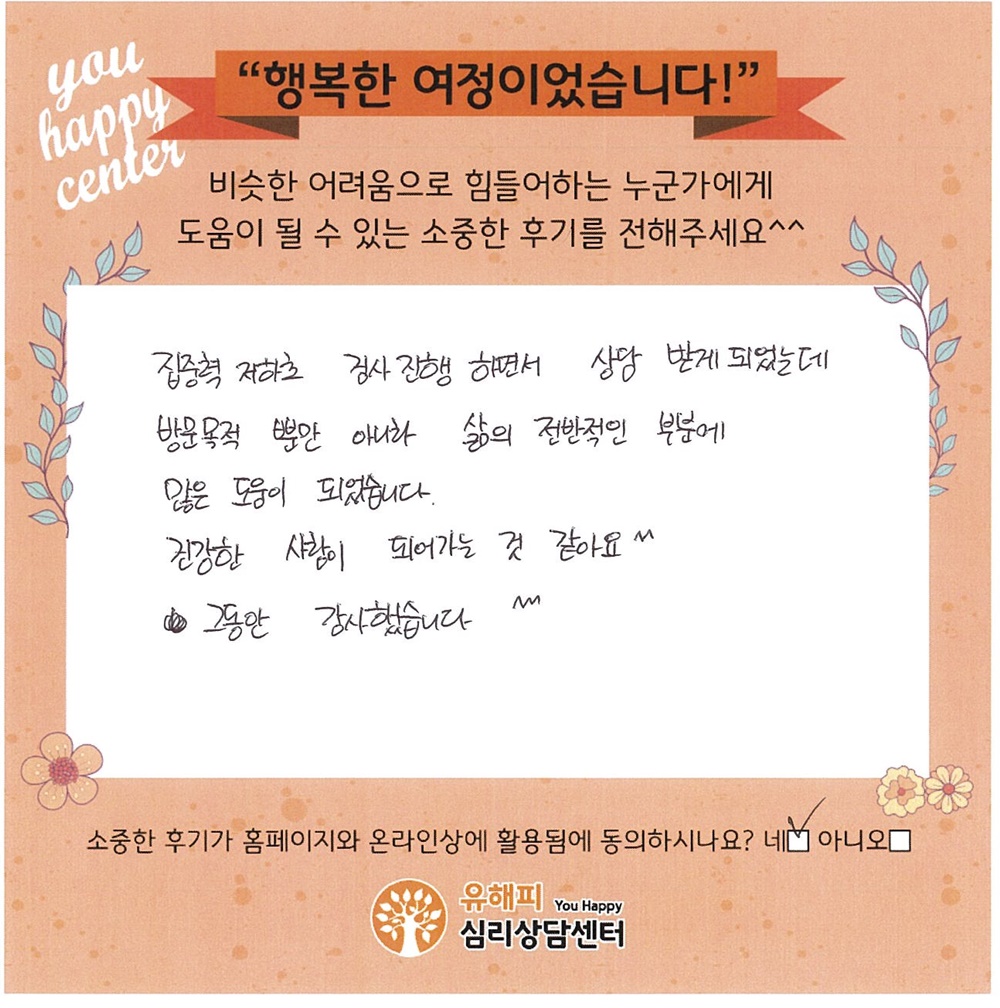 you
happy
center
“행복한 여정이었습니다!”
비슷한 어려움으로 힘들어하는 누군가에게
도움이 될 수 있는 소중한 후기를 전해주세요^^
집중력 저하로 검사 진행 하면서 상담 받게 되었는데
방문목적 뿐만 아니라 삶의 전반적인 부분에
많은 도움이 되었습니다.
건강한 사람이 되어가는 것 같아요^^
그동안 감사했습니다 ^^
소중한 후기가 홈페이지와 온라인상에 활용됨에 동의하시나요? 네 아니오
유해피 You Happy
심리상담센터